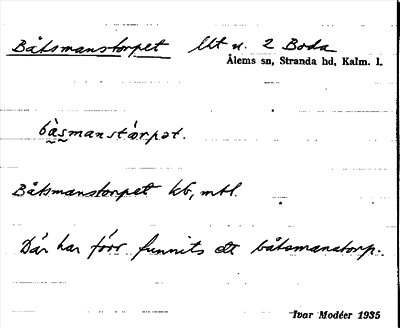 Båtsmanstorpet Ut u. 2 Boda
Ålems sn, Stranda hd, Kalm. l.
båsmanstɷrpət.
Båtsmanstorpet kb, mtl.
Där har förr funnits ett båtsmanstorp.
Ivar Modéer 1935